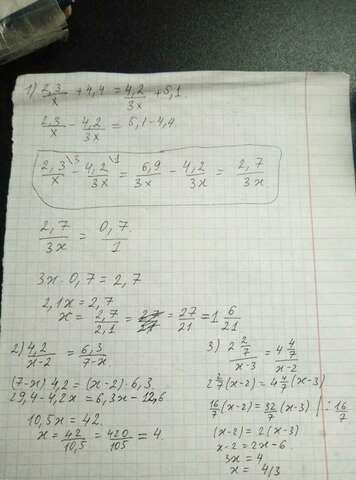 1) 2,3/x + 4,4 = 4,2/3x + 5,1
2,3/x - 4,2/3x = 5,1 - 4,4
2,3/x \3 - 4,2/3x \1 = 6,9/3x - 4,2/3x = 2,7/3x
2,7/3x = 0,7/1
3x · 0,7 = 2,7
2,1x = 2,7
x = 2,7/2,1 = 27/21 = 27/21 = 1 6/21
2) 4,2/x-2 = 6,3/7-x
(7-x) 4,2 = (x-2) · 6,3
29,4 - 4,2x = 6,3x - 12,6
10,5x = 42
x = 42/10,5 = 420/105 = 4
3) 2 2/7/x-3 = 4 4/7/x-2
2 2/7 (x-2) = 4 4/7 (x-3)
16/7 (x-2) = 32/7 (x-3) | : 16/7
(x-2) = 2(x-3)
x-2 = 2x-6
3x = 4
x = 4/3